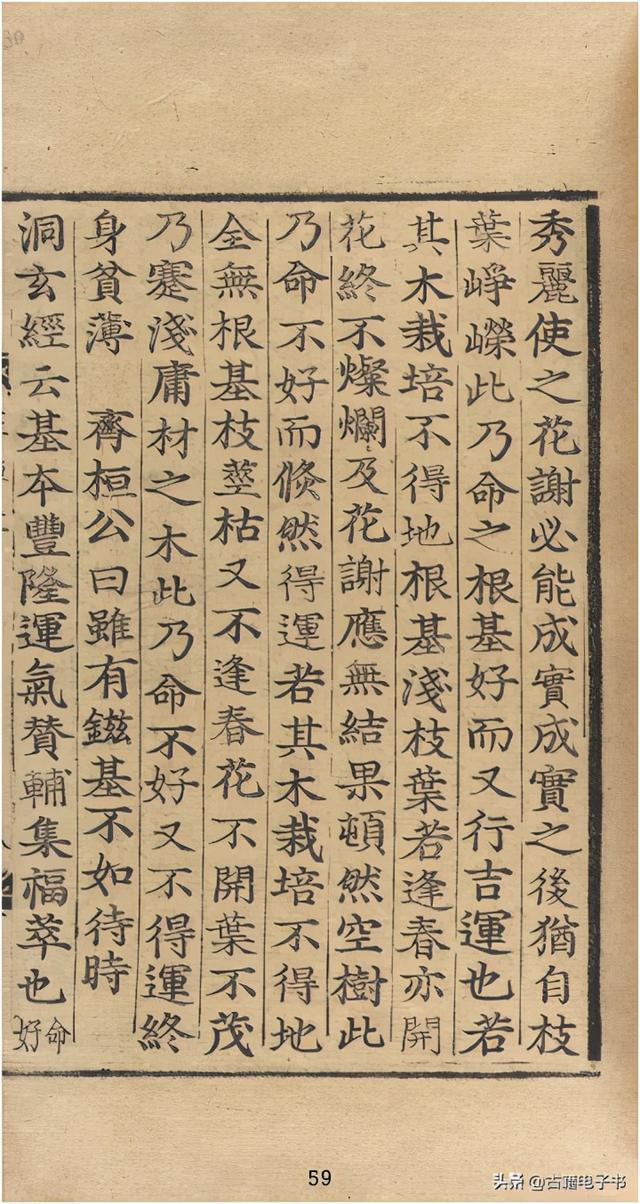 秀麗使之花謝必能成實成實之後猶自枝
葉崢嶸此乃命之根基好而又行吉運也若
其木栽培不得地根基淺枝葉若逢春亦開
花終不燦爛及花謝應無結果頓然空樹此
乃命不好而倐然得運若其木栽培不得地
全無根基枝莖枯又不逢春花不開葉不茂
乃蹇淺庸材之木此乃命不好又不得運終
身貧薄 齊桓公曰雖有鎡基不如待時
洞玄經云基本豐隆運氣賛輔集福萃也命好
59
头条 @古籍电子书